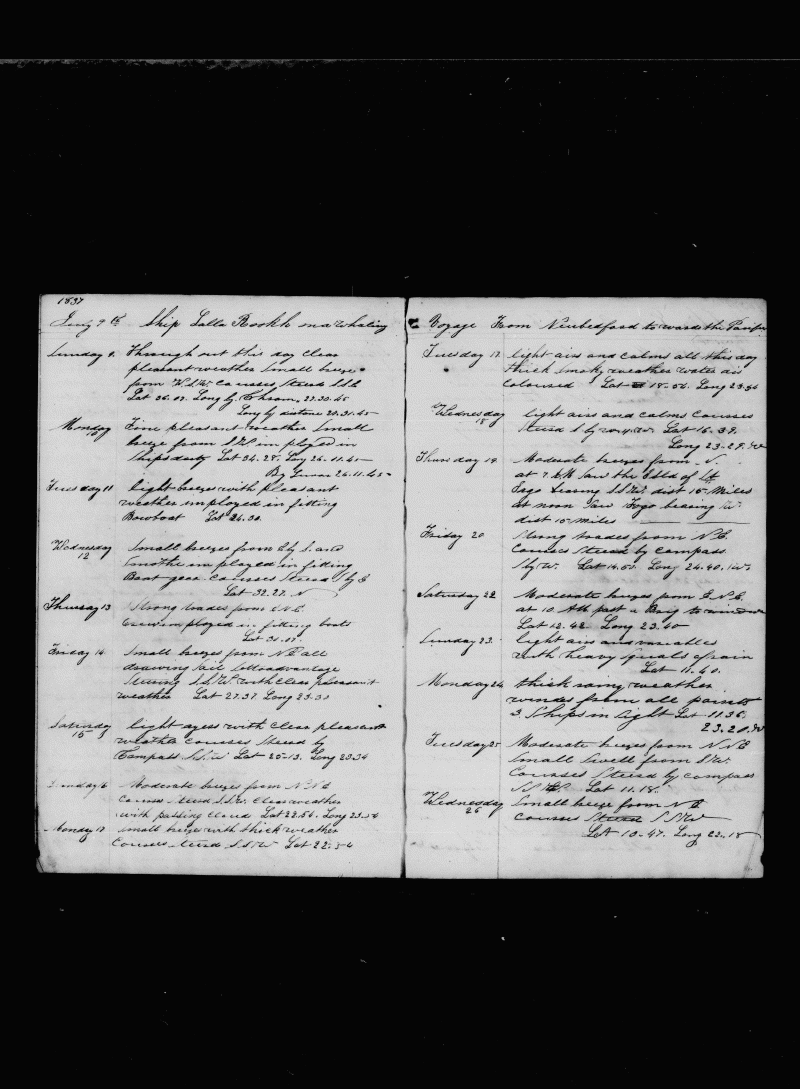 1837
July 9th Ship Lalla Rookh on a Whaling
Sunday 9. Through out this day clear
pleasant weather small breeze
from W.S.W. Courses Steerd S.S.E
Lat 36.07. Long by Chrom. 27.30.45
Long by distance 20.31.45
Monday 10 Fine pleasant weather small
breeze from imployed in
Ships duty Lat 34.28. Long 26.11.45
By Lunar 26.11.45
Tuesday 11 light breezes with pleasant
weather employed in fitting
Bowboat Lat
Wednesday 12 Small breezes from E by S. and
Smothe imployed in fiding
Boat gear Courses Steerd S by E
Lat 32.27. N
Thursay 13 Strong trades from
Crew imployed in fitting boats
Lat 31.07.
Friday 14 Small breezes from N.E all
drawing Sail to advantage
Stering S.S.W. with Clear pleasant
weather Lat 27.37 Long 23.30
Saturday 15 light with Clear pleasant
weather Courses Steerd by
Compass S.S.W Lat 25-13. Long 23.34
Sunday 16 Moderate breezes from N.N.E
Course Steerd S.S.W. Clear weather
with passing Cloud Lat 22.56. Long 23.54
Monday 17 small breeze with thick weather
Courses Steerd S.S.W Lat 22.54
Voyage From Newbedford to wards the Pacific
Tuesday 17. light airs and calms all this day
thick smoky weather water
Coloured Lat 18.56. Long 23.54
Wednesday 18 light airs and calms Courses
Steerd S by W Lat 16.39.
Long 23-29. W
Thursday 19. Moderate breezes from N.
at 7. A.M Saw the Isld of
Jago bearing S.S.W. dist 15 Miles
at noon Saw Fogo bearing W.
dist 10 miles
Friday 20 Strong trades from N.E.
Courses Steerd by compass
S by W. Lat 14.51. Long 24.40.
Saturday 22 Moderate breezes from E.N.E.
at 10. AM past a Brig to windward
Lat 12.42 Long 23.40
Sunday 23. light airs and variables
with heavy squals of rain
Lat 11.40.
Monday 24 thick rainy weather
winds from all points
3. Ships in Sight Lat 11.36.
23.20. W
Tuesday 25 Moderate breezes from N.N.E
Small Swell from S.W.
Courses Steerd by compass
Lat 11.18.
Wednesday 26 Small breeze from N.E
Courses Steerd S.S.W
Lat 10-47. Long 22-18